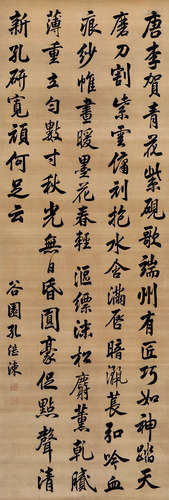 唐李賀青花紫硯歌端州有匠巧如神踏天
磨刀割紫雲傭刓抱水含滿唇暗灑萇弘冷血
痕紗帷晝暖墨花春輕漚漂沫松麝薰乾膩
薄重立勻數寸秋光無日昏圓豪促點聲清
新孔研寬頑何足云
谷園孔继涑